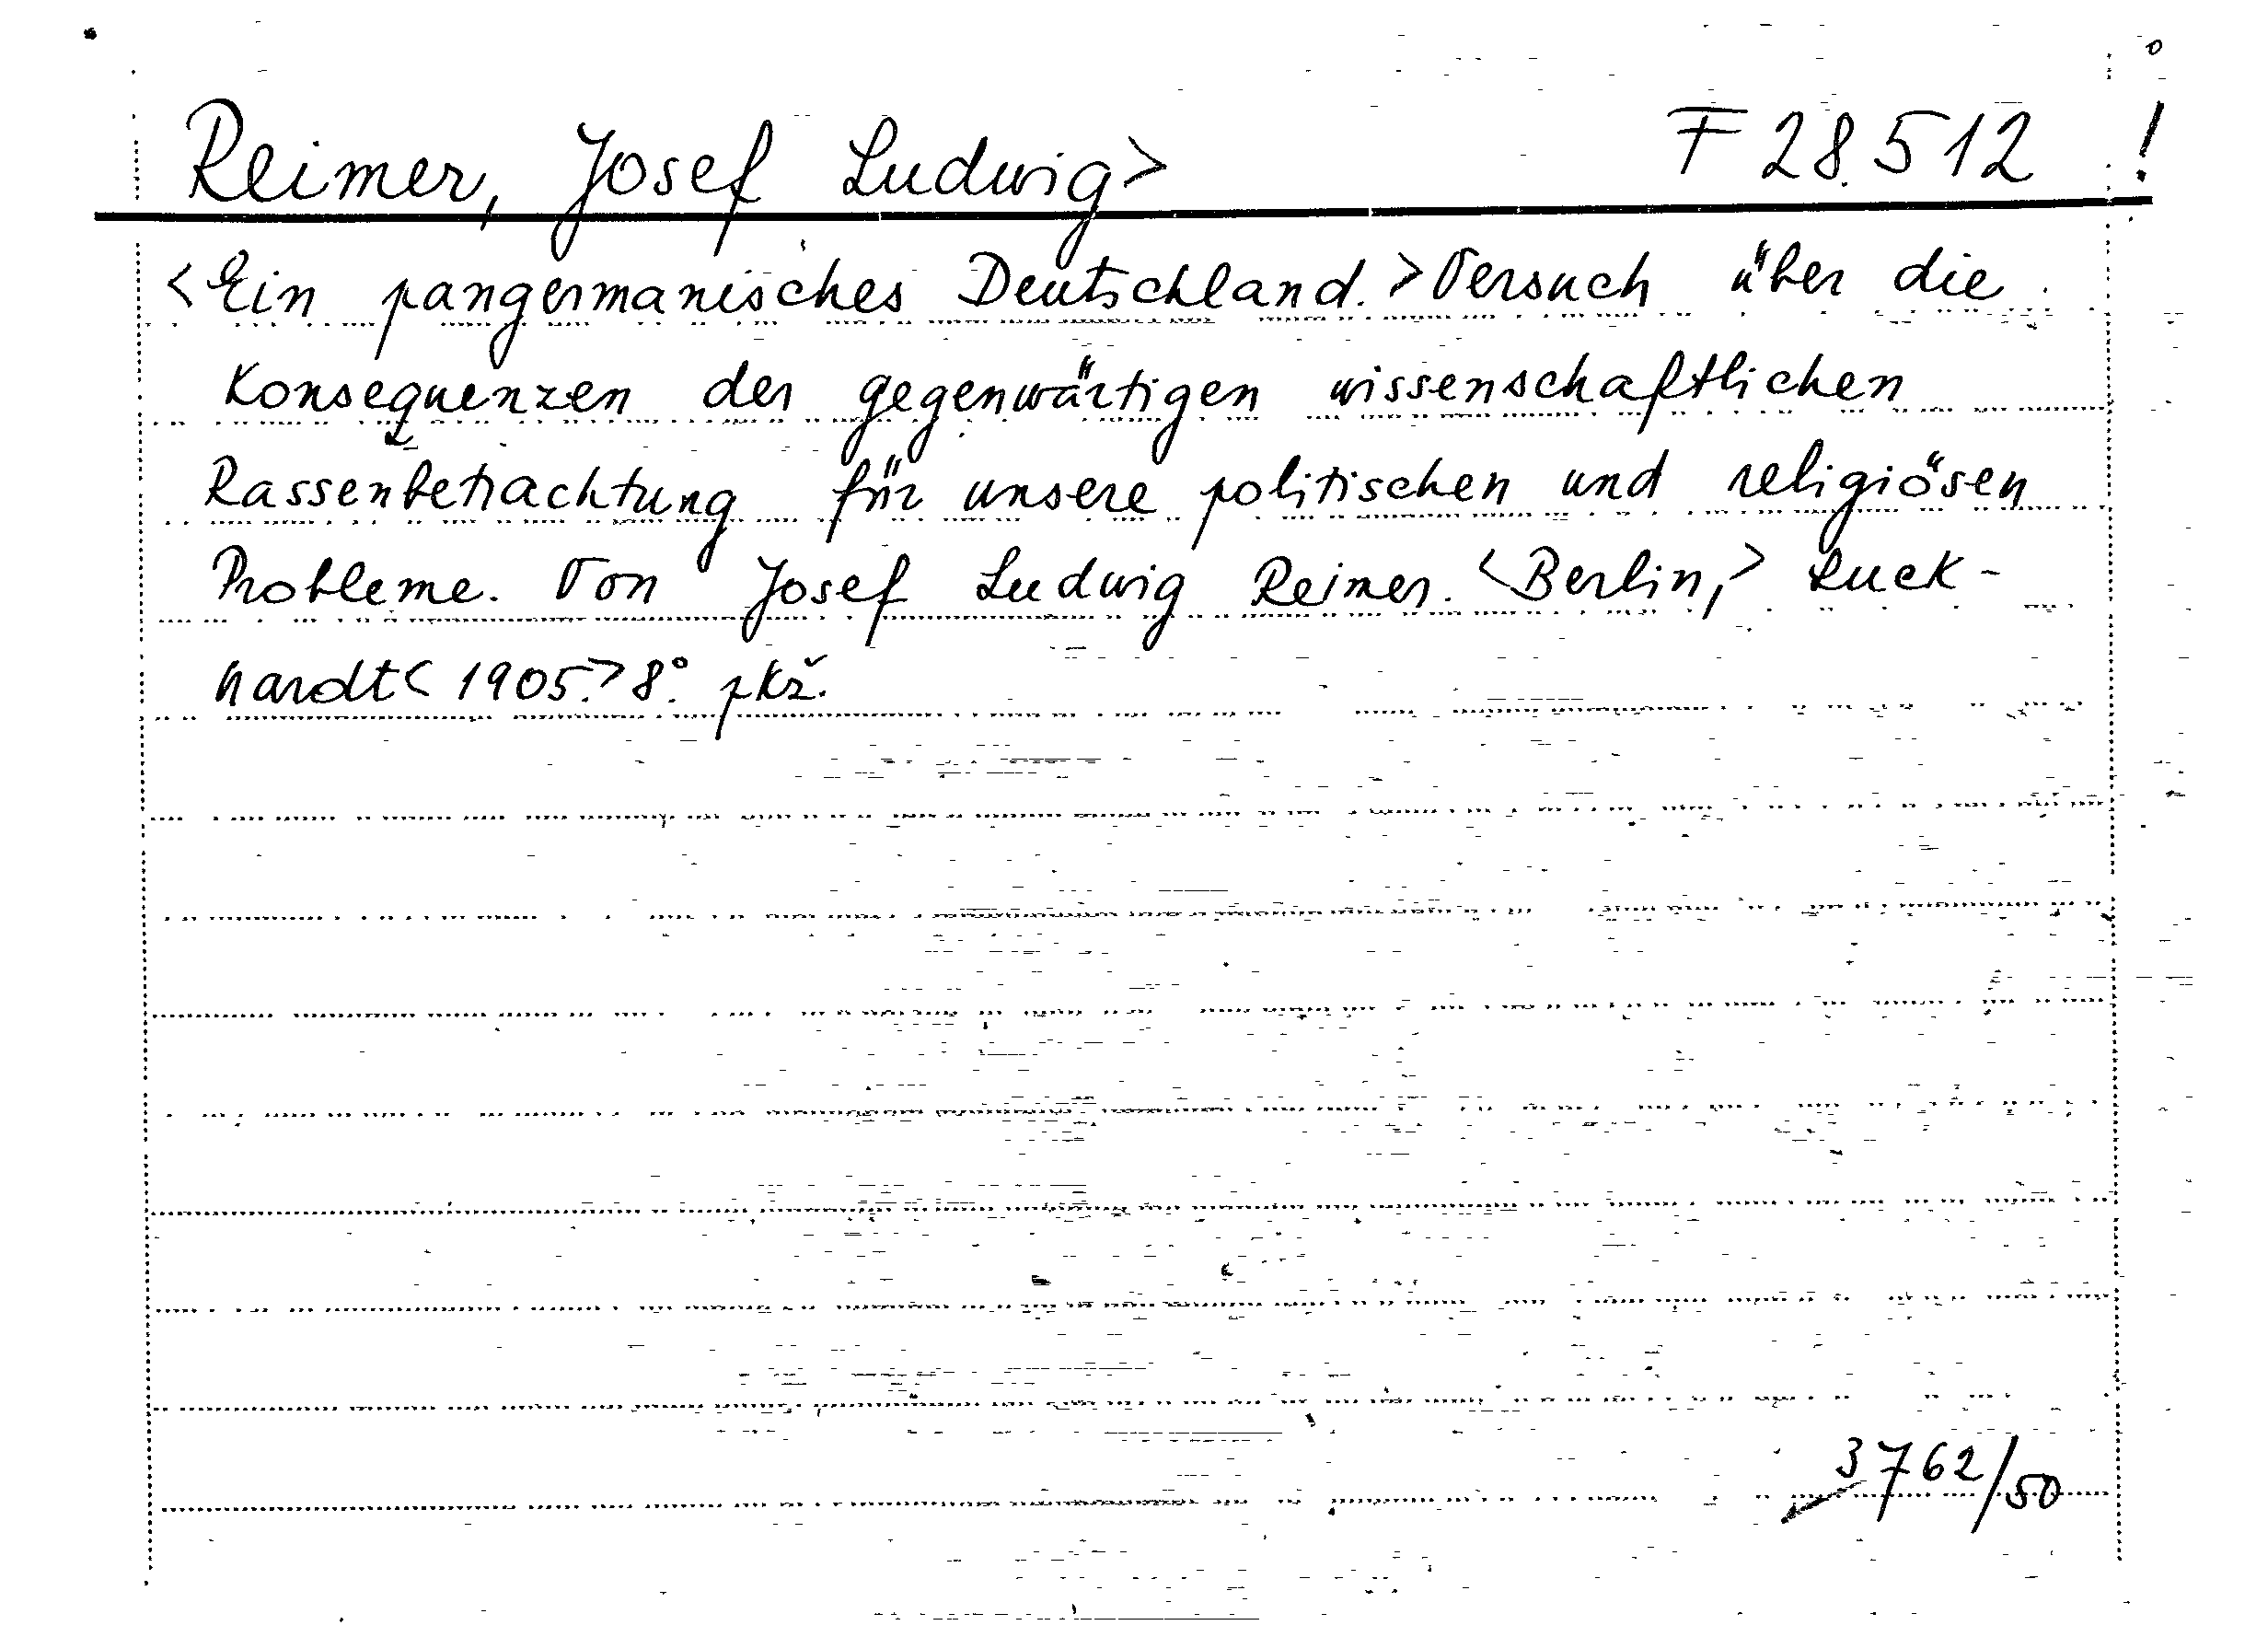 Reimer, Josef Ludwig> F 28.512 !
<Ein pangermanisches Deutschland.> Versuch über die
Konsequenzen der gegenwärtigen wissenschaftlichen
Rassenbetrachtung für unsere politischen und religiösen
Probleme. Von Josef Ludwig Reimer. <Berlin,> Luck-
hardt< 1905.> 8°. pkž.
3762/50